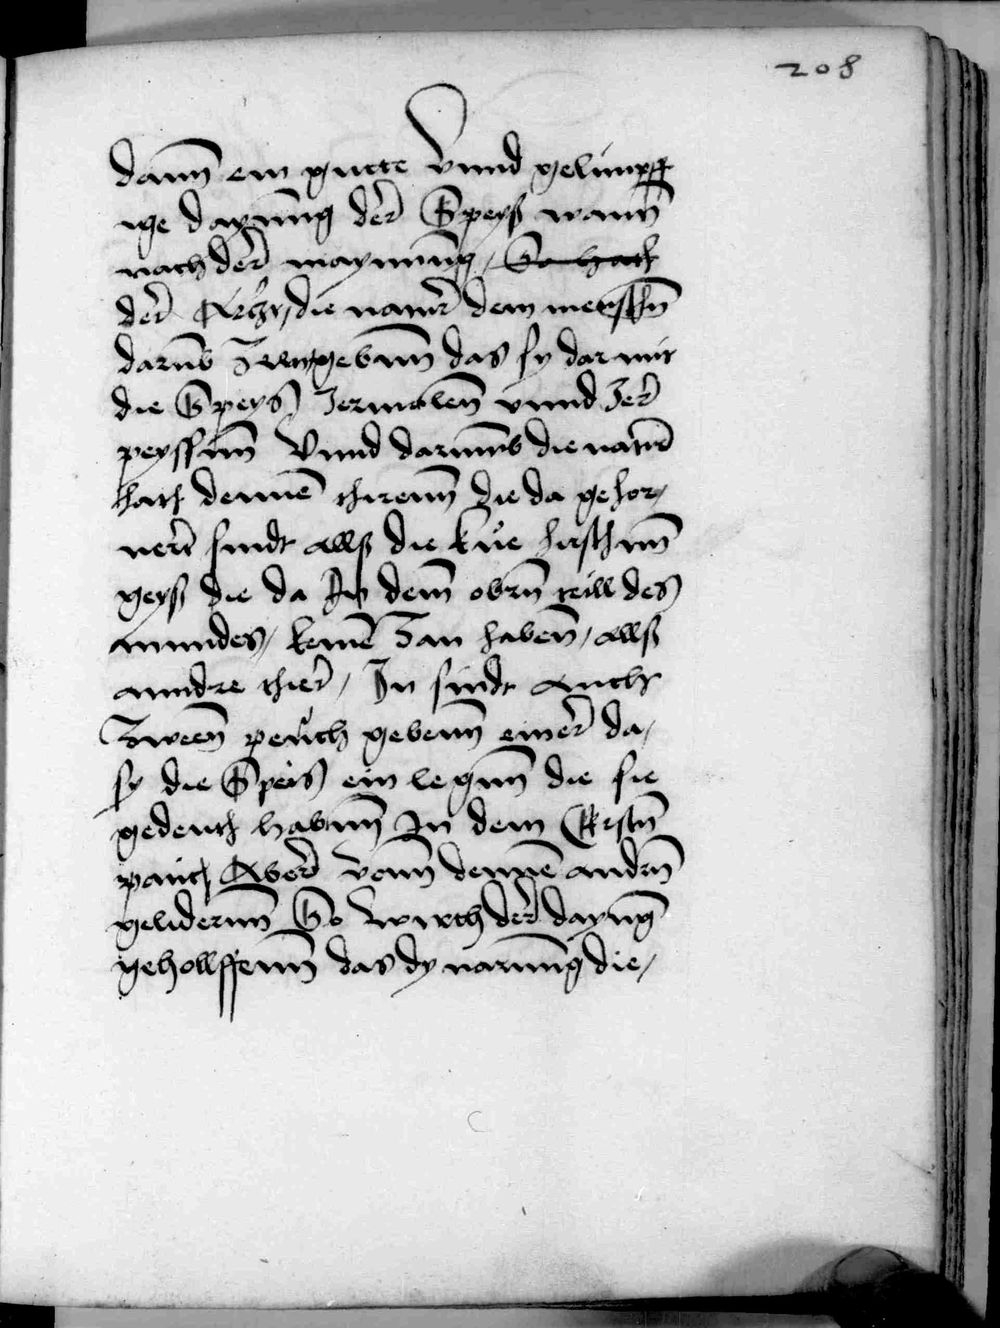 208
dann ein gutte vnnd gelimpff
ige dayung der Speyß wann
nach der maynung, So hatt
der Artzt, die natur dem menschn
darumb Zen gebenn das sy dar mit
die Speyß Zermalenn vnnd Zer
peyssenn Vnnd darumb die natur
hatt dennen thirenn die da gehor,
nert sindt allß die kűe hirschnn
geyß die da In dem obrn teill des
mundes, kein Zan haben, allß
anndre thier, In sindt auch
Zween peuch gebenn einer da,
sy die Speiß ein legnn die sie
gedeuth habnn In dem Erstn
pauch Aber vonn dennen andrn
gelidernn So wirth der dayung
gehollffenn das dy narung die,